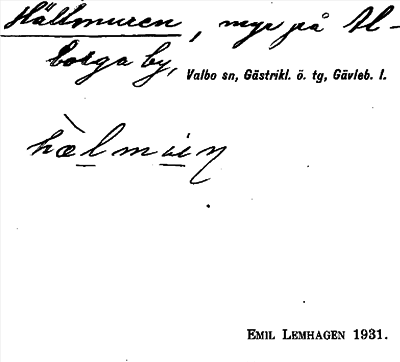 Hällmuren, myr på Al-
borga by, Valbo sn, Gästrikl. ö. tg, Gävleb. l.
hæ̀lmuɪn
EMIL LEMHAGEN 1931.